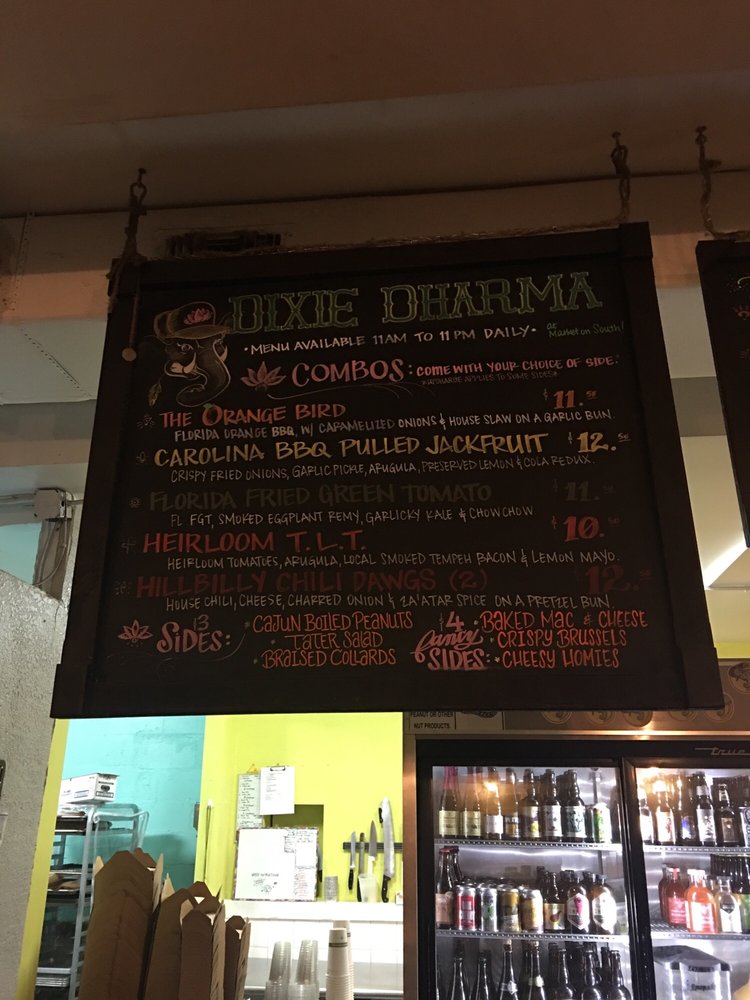 DIXIE DHARMA
• MENU AVAILABLE 11AM TO 11 PM DAILY • at Market on South!
COMBOS: COME WITH YOUR CHOICE OF SIDE.
*UPCHARGE APPLIES TO SOME SIDES*
THE ORANGE BIRD $11.50
FLORIDA ORANGE BBQ, W/ CARAMELIZED ONIONS & HOUSE SLAW ON A GARLIC BUN.
CAROLINA BBQ PULLED JACKFRUIT $12.50
CRISPY FRIED ONIONS, GARLIC PICKLE, ARUGULA, PRESERVED LEMON & COLA REDUX.
FLORIDA FRIED GREEN TOMATO $11.50
FL FGT, SMOKED EGGPLANT REMY, GARLICKY KALE & CHOW CHOW
HEIRLOOM T.L.T. $10.50
HEIRLOOM TOMATOES, ARUGULA, LOCAL SMOKED TEMPEH BACON & LEMON MAYO.
HILLBILLY CHILI DAWGS (2) $12.50
HOUSE CHILI, CHEESE, CHARRED ONION & ZA'ATAR SPICE ON A PRETZEL BUN.
$3 SIDES:
• CAJUN BOILED PEANUTS
• TATER SALAD
• BRAISED COLLARDS
$4 fancy SIDES:
• BAKED MAC & CHEESE
• CRISPY BRUSSELS
• CHEESY HOMIES
PEANUT OR OTHER
NUT PRODUCTS
true